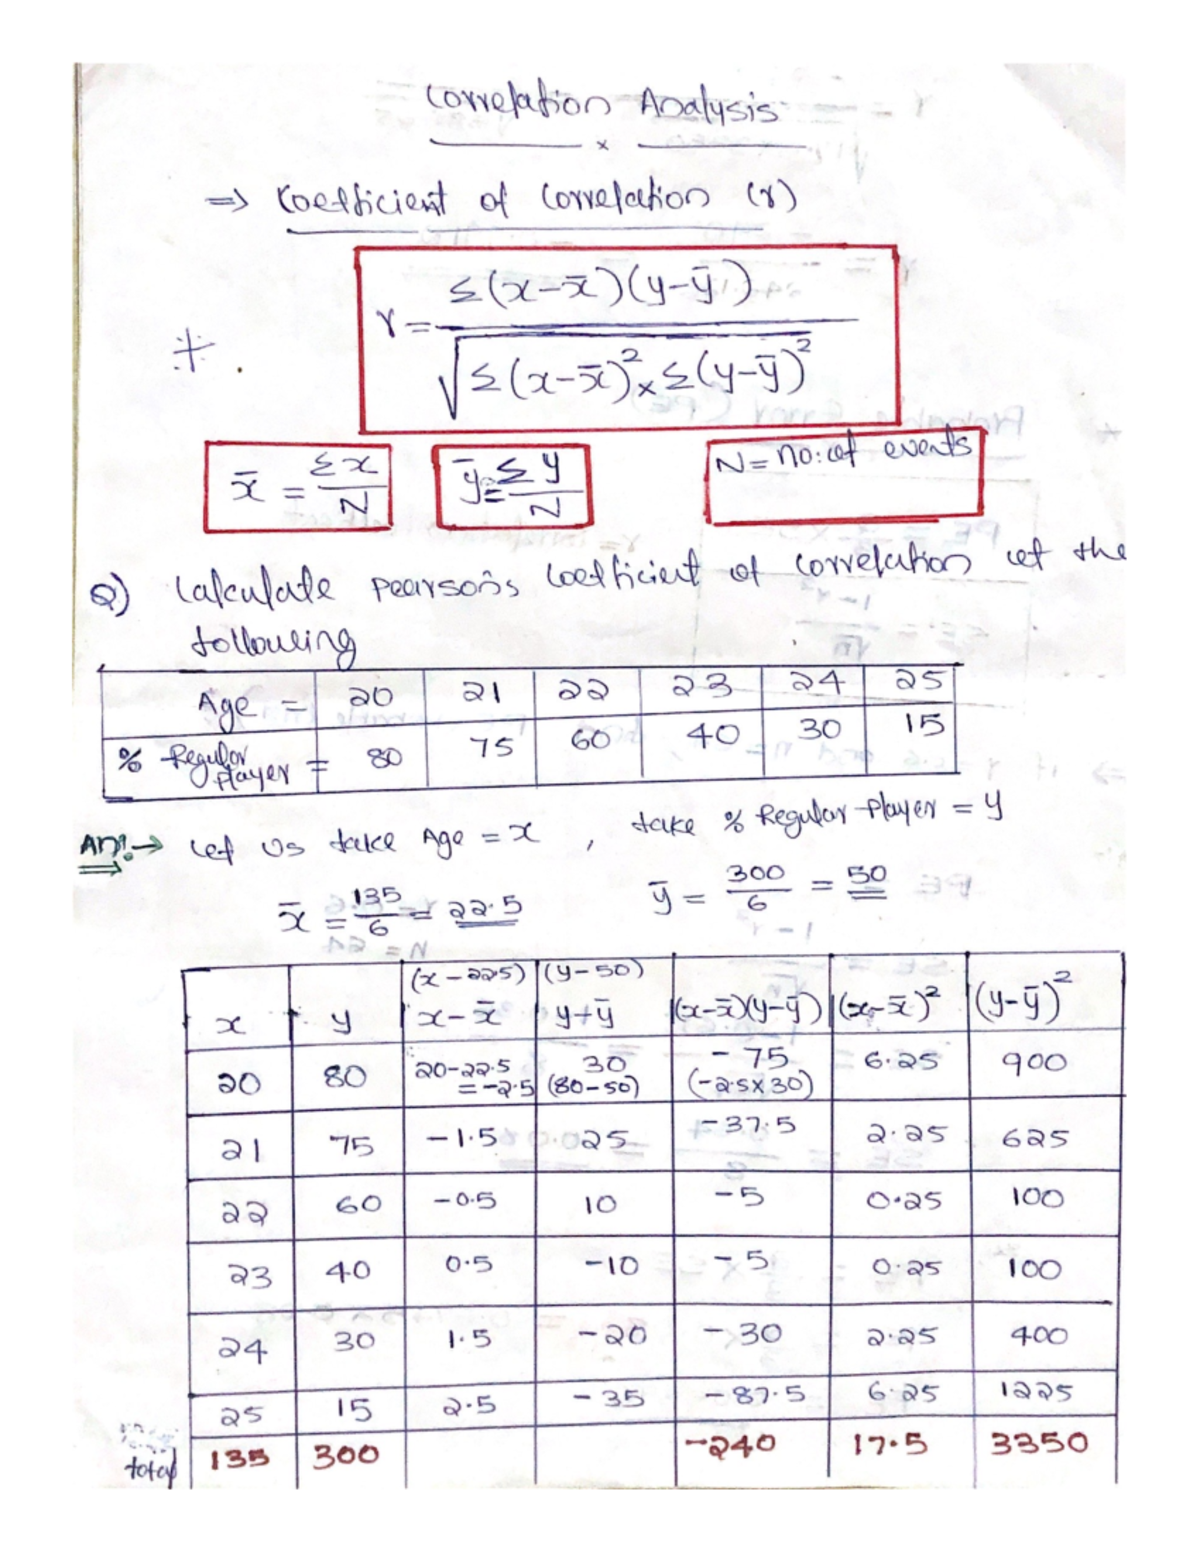 Correlation Analysis
x
⇒ Coefficient of Correlation (r)
r = Σ(x-x̄)(y-ȳ) / √Σ(x-x̄)² × Σ(y-ȳ)²
x̄ = Σx / N
ȳ = Σy / N
N = no: of events
Q) Calculate pearson's Coefficient of correlation of the
following
Age = 20 21 22 23 24 25
% Regular player = 80 75 60 40 30 15
Ans:→ Let us take Age = x , take % Regular Player = y
x̄ = 135/6 = 22.5 ȳ = 300/6 = 50
(x-225) (y-50)
x y x-x̄ y+ȳ (x-x̄)(y-ȳ) (x-x̄)² (y-ȳ)²
20 80 20-22.5 = -2.5 30 (80-50) -75 (-2.5x30) 6.25 900
21 75 -1.5 25 -37.5 2.25 625
22 60 -0.5 10 -5 0.25 100
23 40 0.5 -10 -5 0.25 100
24 30 1.5 -20 -30 2.25 400
25 15 2.5 -35 -87.5 6.25 1225
total 135 300 -240 17.5 3350